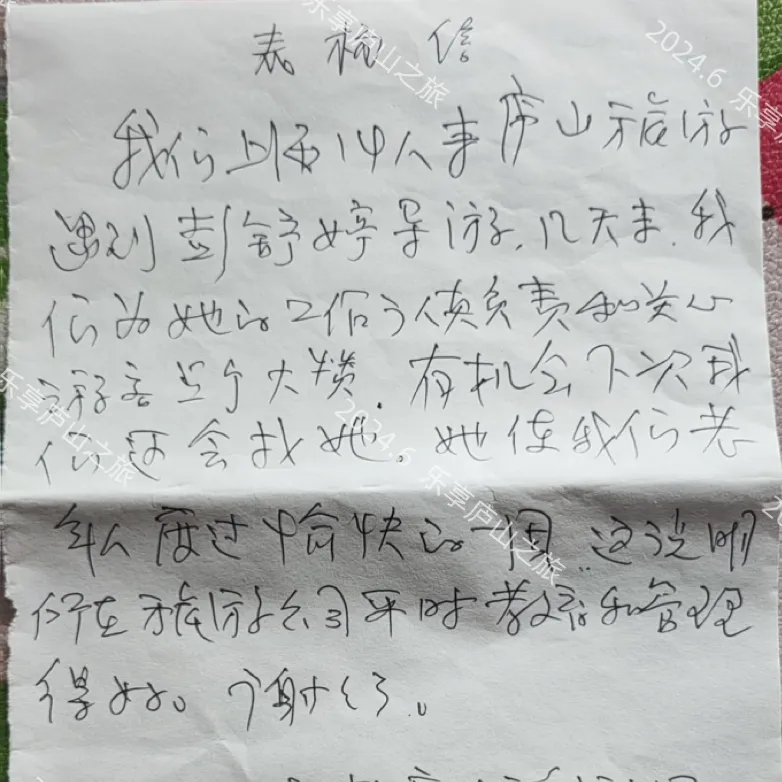 表祝信
我们上海14人来庐山旅游
遇到彭舒婷导游,几天来,我
们为她的工作认真负责和关心
游客点个大赞.有机会下次我
们还会找她。她使我们老
年人度过愉快的一周,这说明
所在旅游公司平时教育和管理
得好。谢谢了。
2024.6 乐享庐山之旅
乐享庐山之旅
2024.6 乐享庐山之旅
乐享庐山之旅